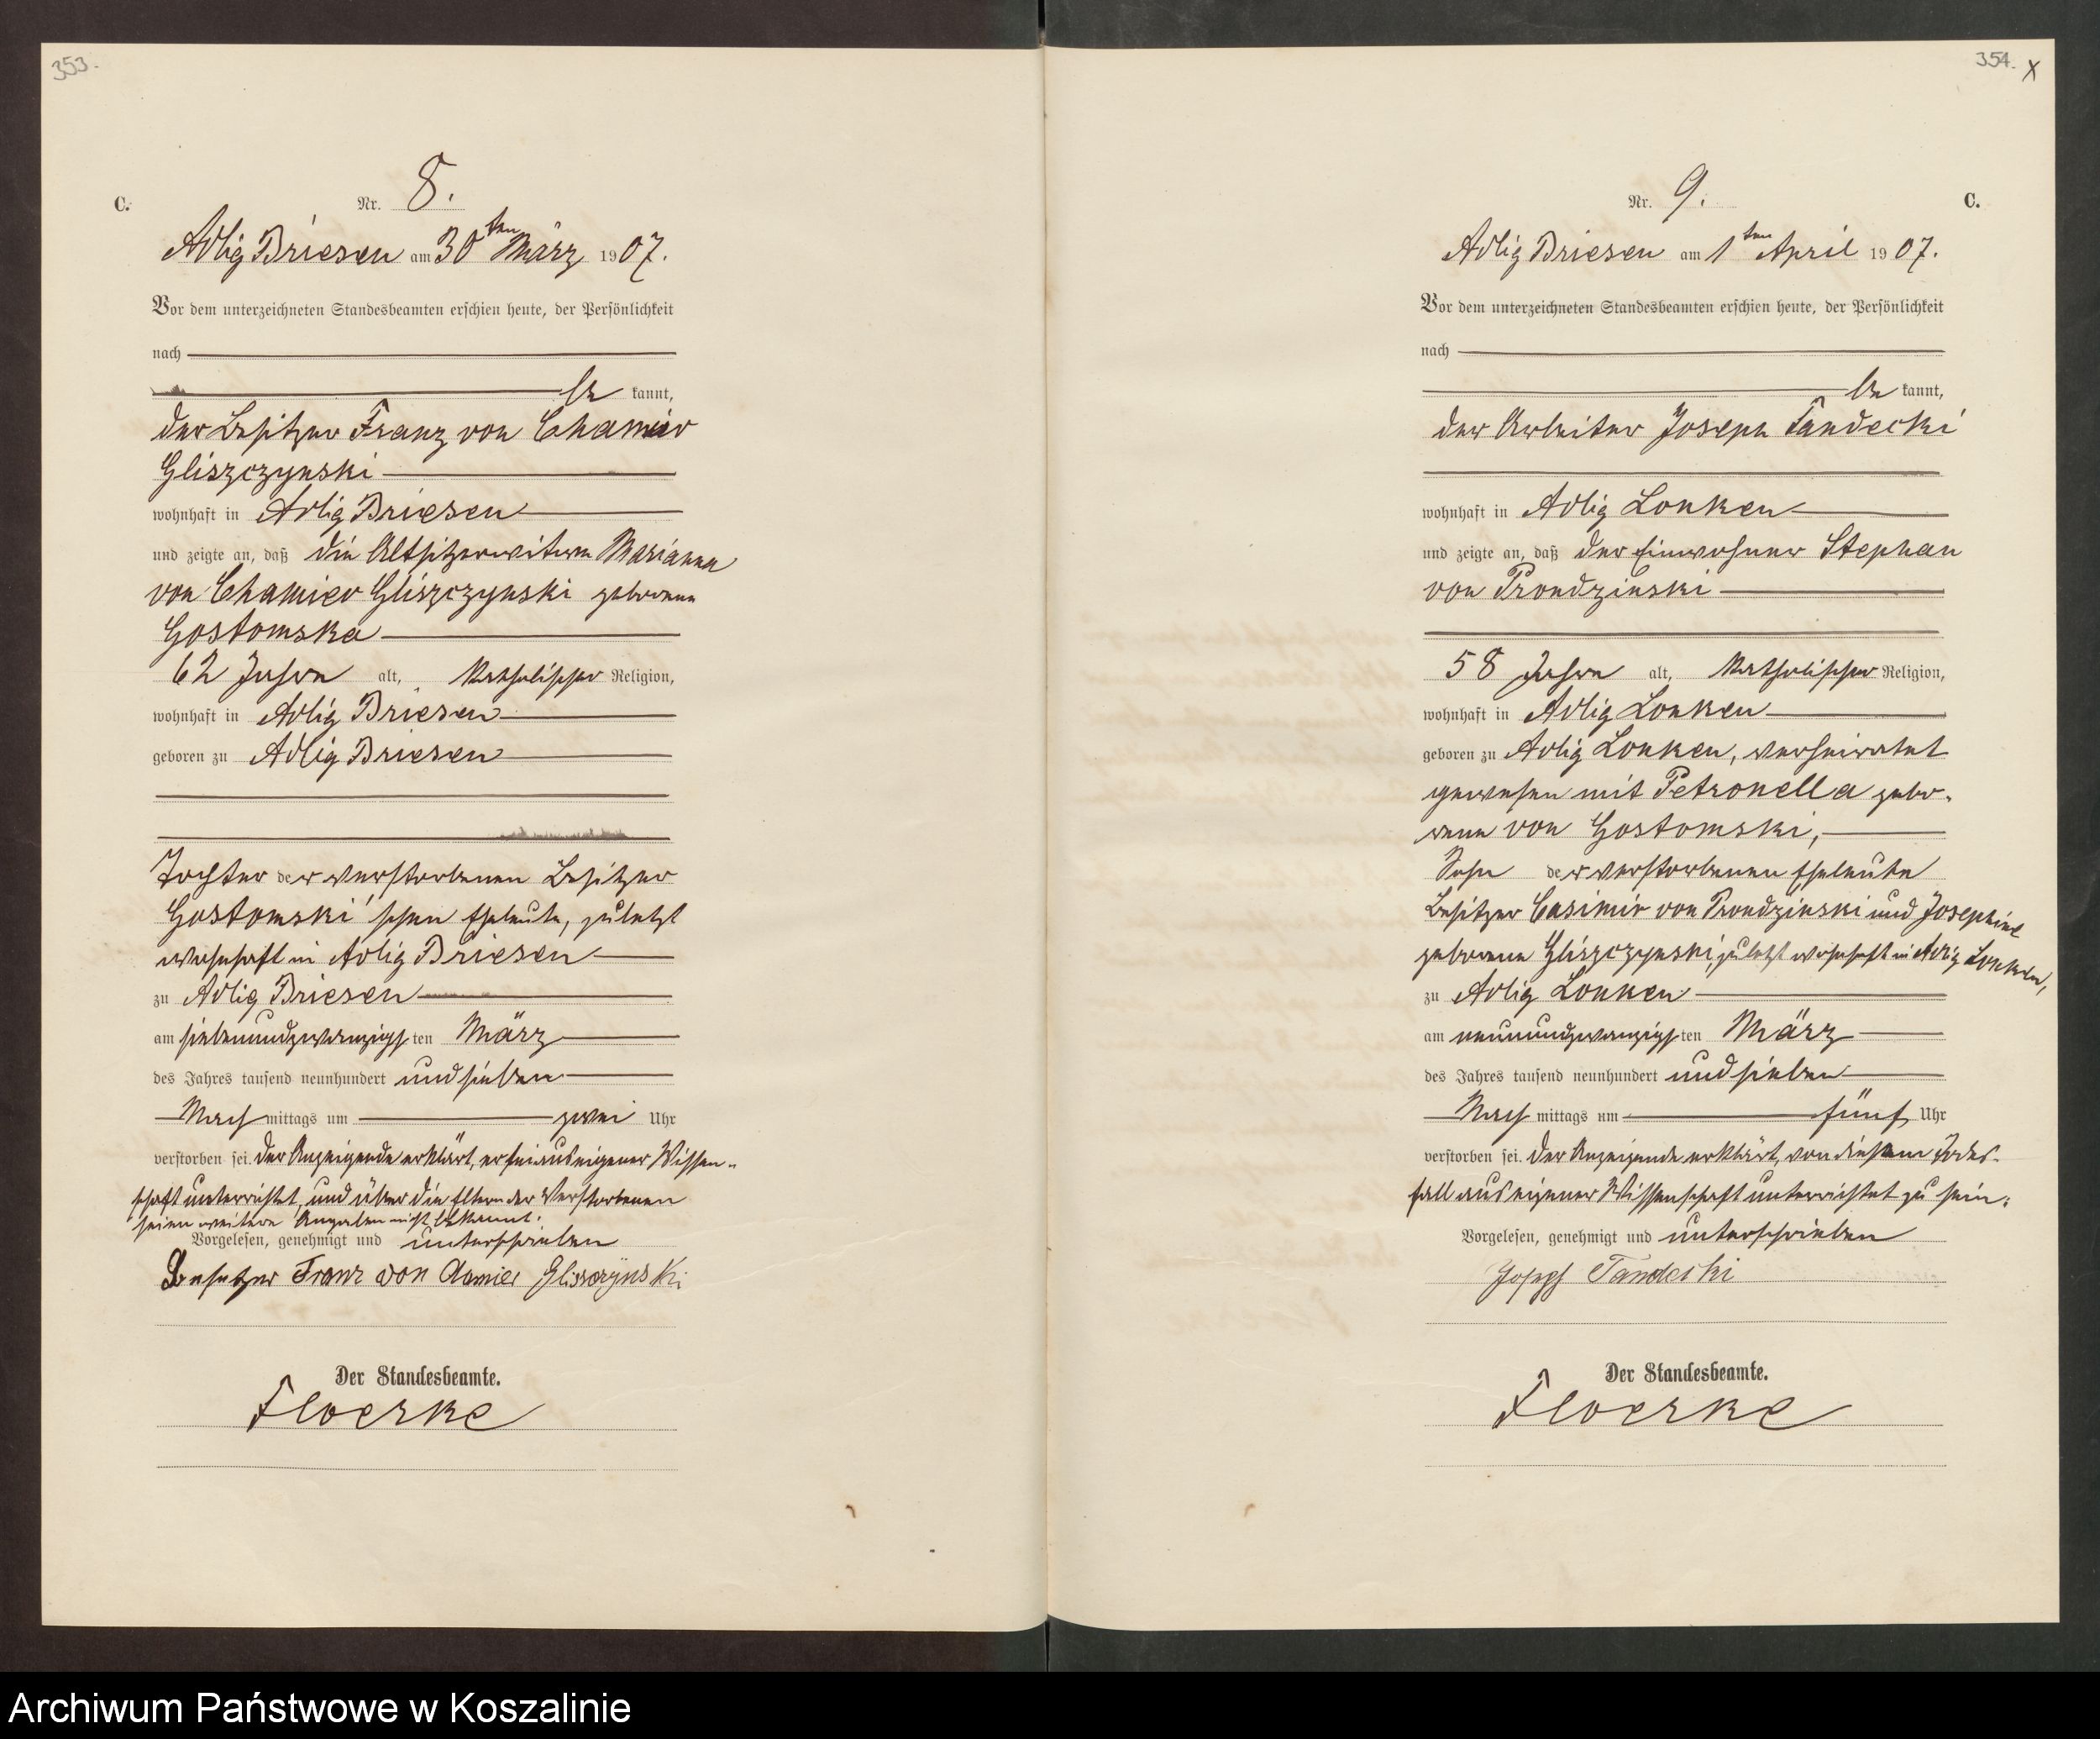 353.
C.
Nr. 8.
Adlig Briesen am 30ten März 1907.
Vor dem unterzeichneten Standesbeamten erschien heute, der Persönlichkeit
nach
be kannt,
der Besitzer Franz von Chamier
Gliszczynski
wohnhaft in Adlig Briesen
und zeigte an, daß die Altsitzerwitwe Marianna
von Chamier Gliszczynski geborene
Gostomska
62 Jahre alt, katholischer Religion,
wohnhaft in Adlig Briesen
geboren zu Adlig Briesen
Tochter der verstorbenen Besitzer
Gostomski'schen Eheleute, zuletzt
wohnhaft in Adlig Briesen
zu Adlig Briesen
am siebenundzwanzigsten März
des Jahres tausend neunhundert und sieben
Nachmittags um zwei Uhr
verstorben sei. Der Anzeigende erklärt, er sei aus eigener Wissen-
schaft unterrichtet, und über die Eltern der Verstorbenen
seien weitere Angaben nicht bekannt.
Vorgelesen, genehmigt und unterschrieben
Besetzer Franz von Chamier Gliszczynski
Der Standesbeamte.
Floerke
354. X
Nr. 9.
C.
Adlig Briesen am 1ten April 1907.
Vor dem unterzeichneten Standesbeamten erschien heute, der Persönlichkeit
nach
be kannt,
der Arbeiter Joseph Tandecki
wohnhaft in Adlig Lonken
und zeigte an, daß der Einwohner Stephan
von Prondzinski
58 Jahre alt, katholischer Religion,
wohnhaft in Adlig Lonken
geboren zu Adlig Lonken, verheiratet
gewesen mit Petronella gebo-
rene von Gostomski,
Sohn der verstorbenen Eheleute
Besitzer Casimir von Prondzinski und Josephine
geborene Gliszczynski, zuletzt wohnhaft in Adlig Lonken,
zu Adlig Lonken
am neunundzwanzigsten März
des Jahres tausend neunhundert und sieben
Nachmittags um fünf Uhr
verstorben sei. Der Anzeigende erklärt, von diesem Todes-
fall aus eigener Wissenschaft unterrichtet zu sein.
Vorgelesen, genehmigt und unterschrieben
Joseph Tandecki
Der Standesbeamte.
Floerke
Archiwum Państwowe w Koszalinie